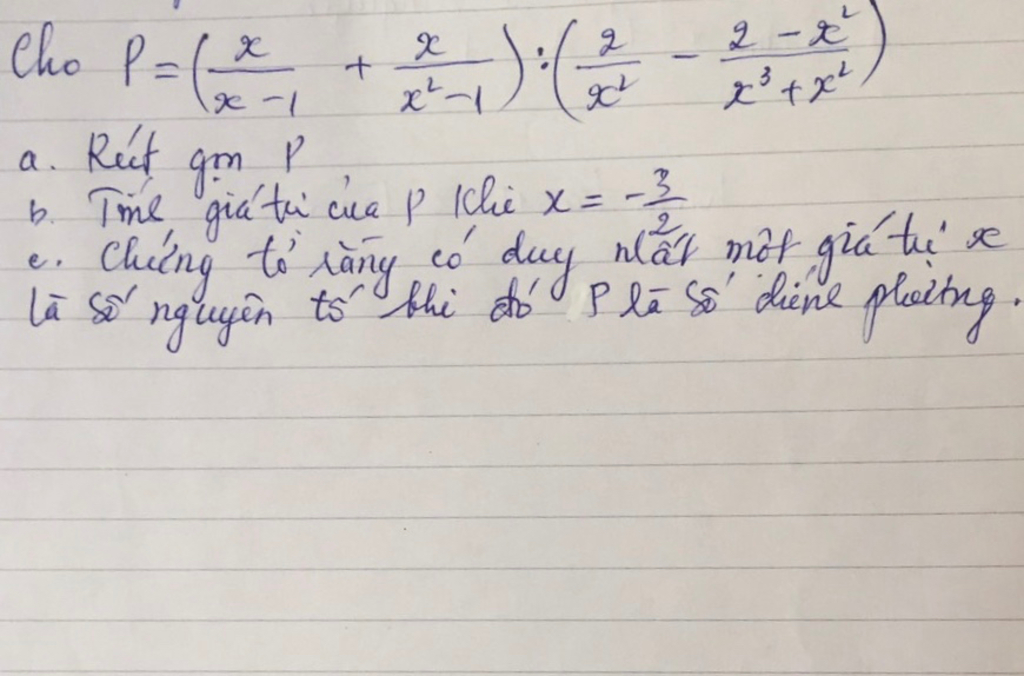 Cho P = (x/(x-1) + x/(x²-1)) : (2/x² - (2-x²)/(x³+x²))
a. Rút gọn P
b. Tính giá trị của P khi x = -3/2
c. Chứng tỏ rằng có duy nhất một giá trị x
là số nguyên tố khi đó P là số chính phương.